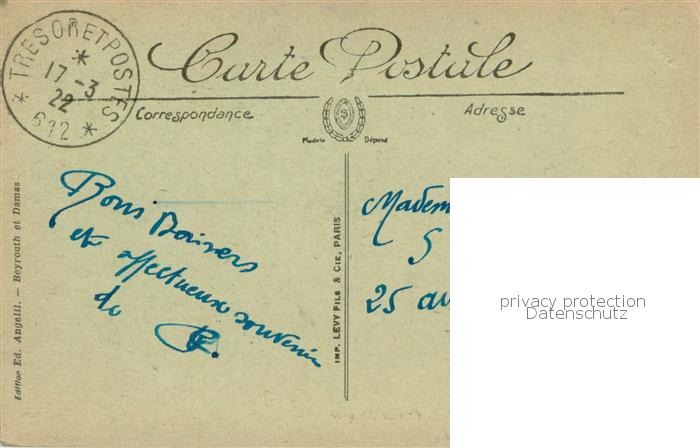 * TRESOR ET POSTES *
*
17-3
22
612
Carte Postale
Correspondance
Adresse
Modèle Déposé
Bons Baisers
et affectueux souvenir
de
Madem
S
25 av
Edition Ed. Angelil. — Beyrouth et Damas
IMP. LEVY FILS & CIE, PARIS
privacy protection
Datenschutz